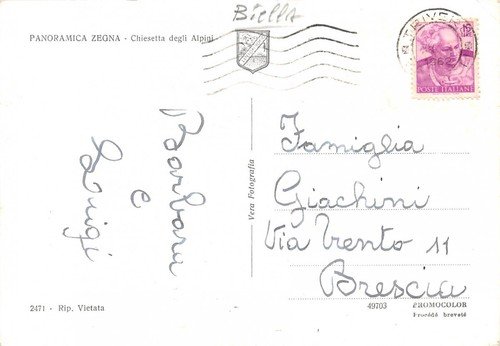 Biella
PANORAMICA ZEGNA - Chiesetta degli Alpini
TRIVERO
1962
POSTE ITALIANE
Barbara
e
Luigi
Vera Fotografia
Famiglia
Giachini
Via Trento 11
Brescia
2471 - Rip. Vietata
49703
PROMOCOLOR
Procédé breveté